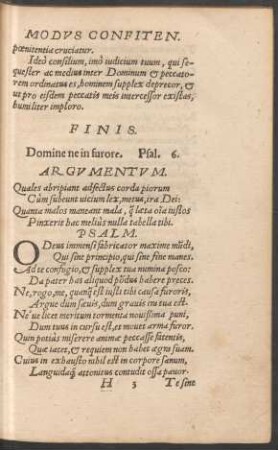 MODVS CONFITEN.
pœnitentia cruciatur.
Ideò consilium, imò iudicium tuum, qui se-
quester ac medius inter Dominum & peccato-
rem ordinatus es, hominem supplex deprecor, &
ut pro eisdem peccatis meis intercessor existas,
humiliter imploro.
FINIS.
Domine ne in furore. Psal. 6.
ARGVMENTVM.
Quales abripiant adfectus corda piorum
Cùm subeunt uitium lex, metus, ira Dei:
Quanta malos maneant mala, q̃ læta oĩa iustos
Pinxerit hac meliùs nulla tabella tibi.
PSALM.
O Deus immensi fabricator maxime mũdi,
Qui sine principio, qui sine fine manes.
Ad te confugio, & supplex tua numina posco:
Da pater has aliquod põdus habere preces.
Ne, rogo, me, quanq̃ est iusti tibi causa furoris,
Argue dum sæuis, dum grauis ira tua est.
Ne'ue licet meritum tormenta nouissima puni,
Dum tuus in cursu est, et mouet arma furor.
Quin potiùs miserere animæ peccasse fatentis,
Quæ iacet, & requiem non habet ægra suam.
Cuius in exhausto nihil est in corpore sanum,
Languidaq́; attonitus contudit ossa pauor.
H 5 Te sine